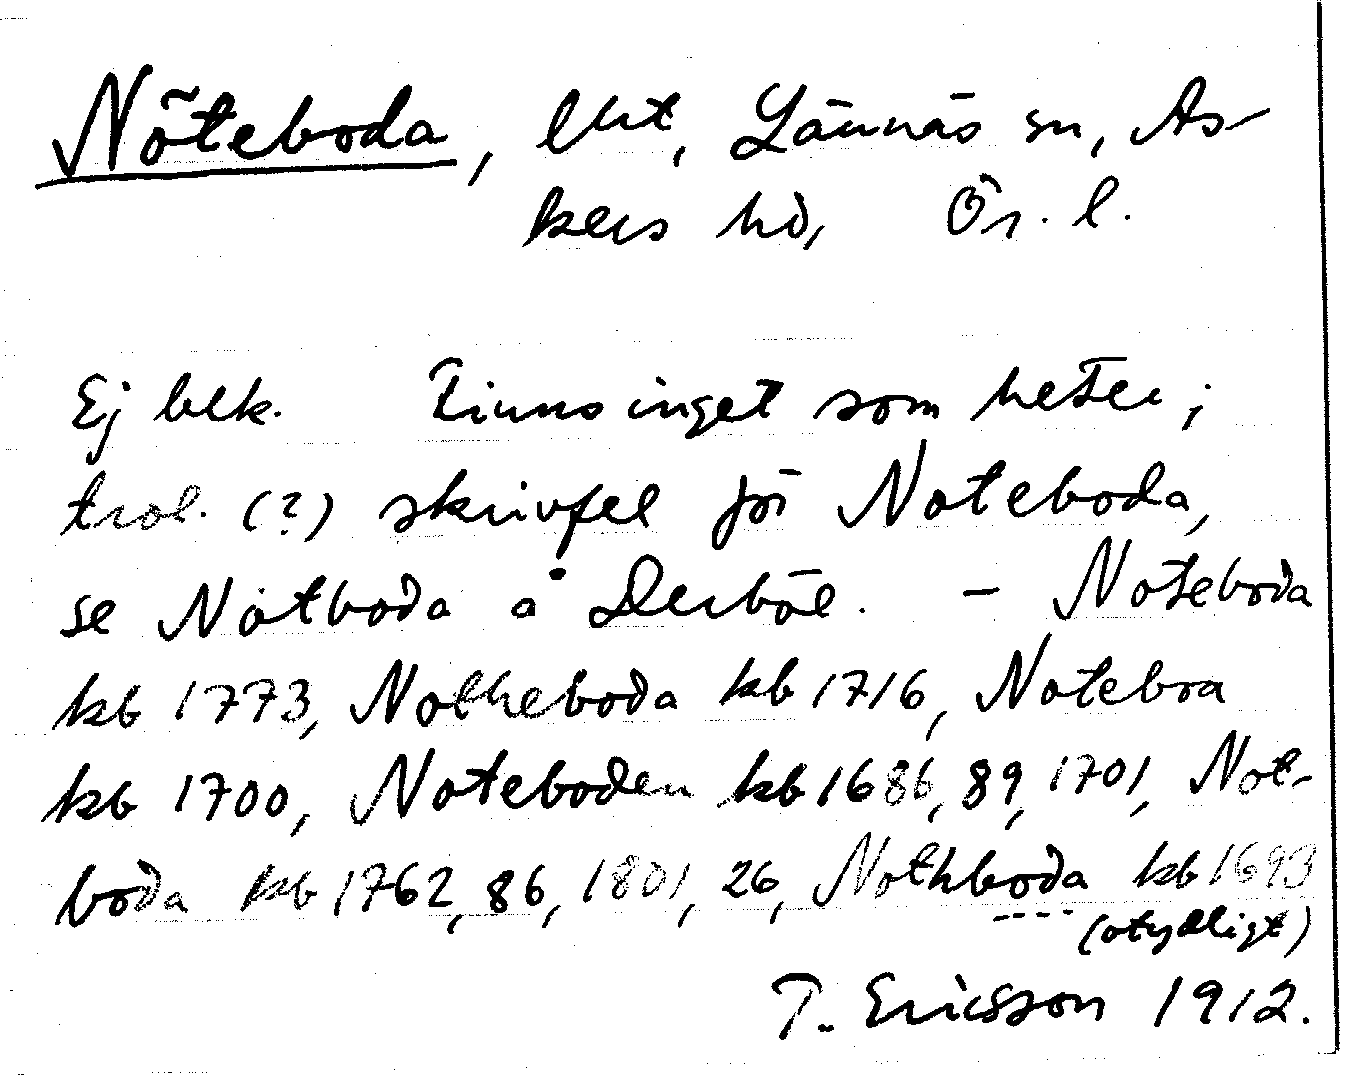 Nöteboda, lht, Lännäs sn, As-
kers hd, Ör. l.
Ej bek. Finns inget som heter;
trol. (?) skrivfel för Noteboda,
se Notboda å Derböl. – Noteboda
kb 1773, Notheboda kb 1716, Notebra
kb 1700, Noteboden kb 1686, 89, 1701, Not-
boda kb 1762, 86, 1801, 26, Nothboda kb 1693
(otydligt)
T. Ericsson 1912.